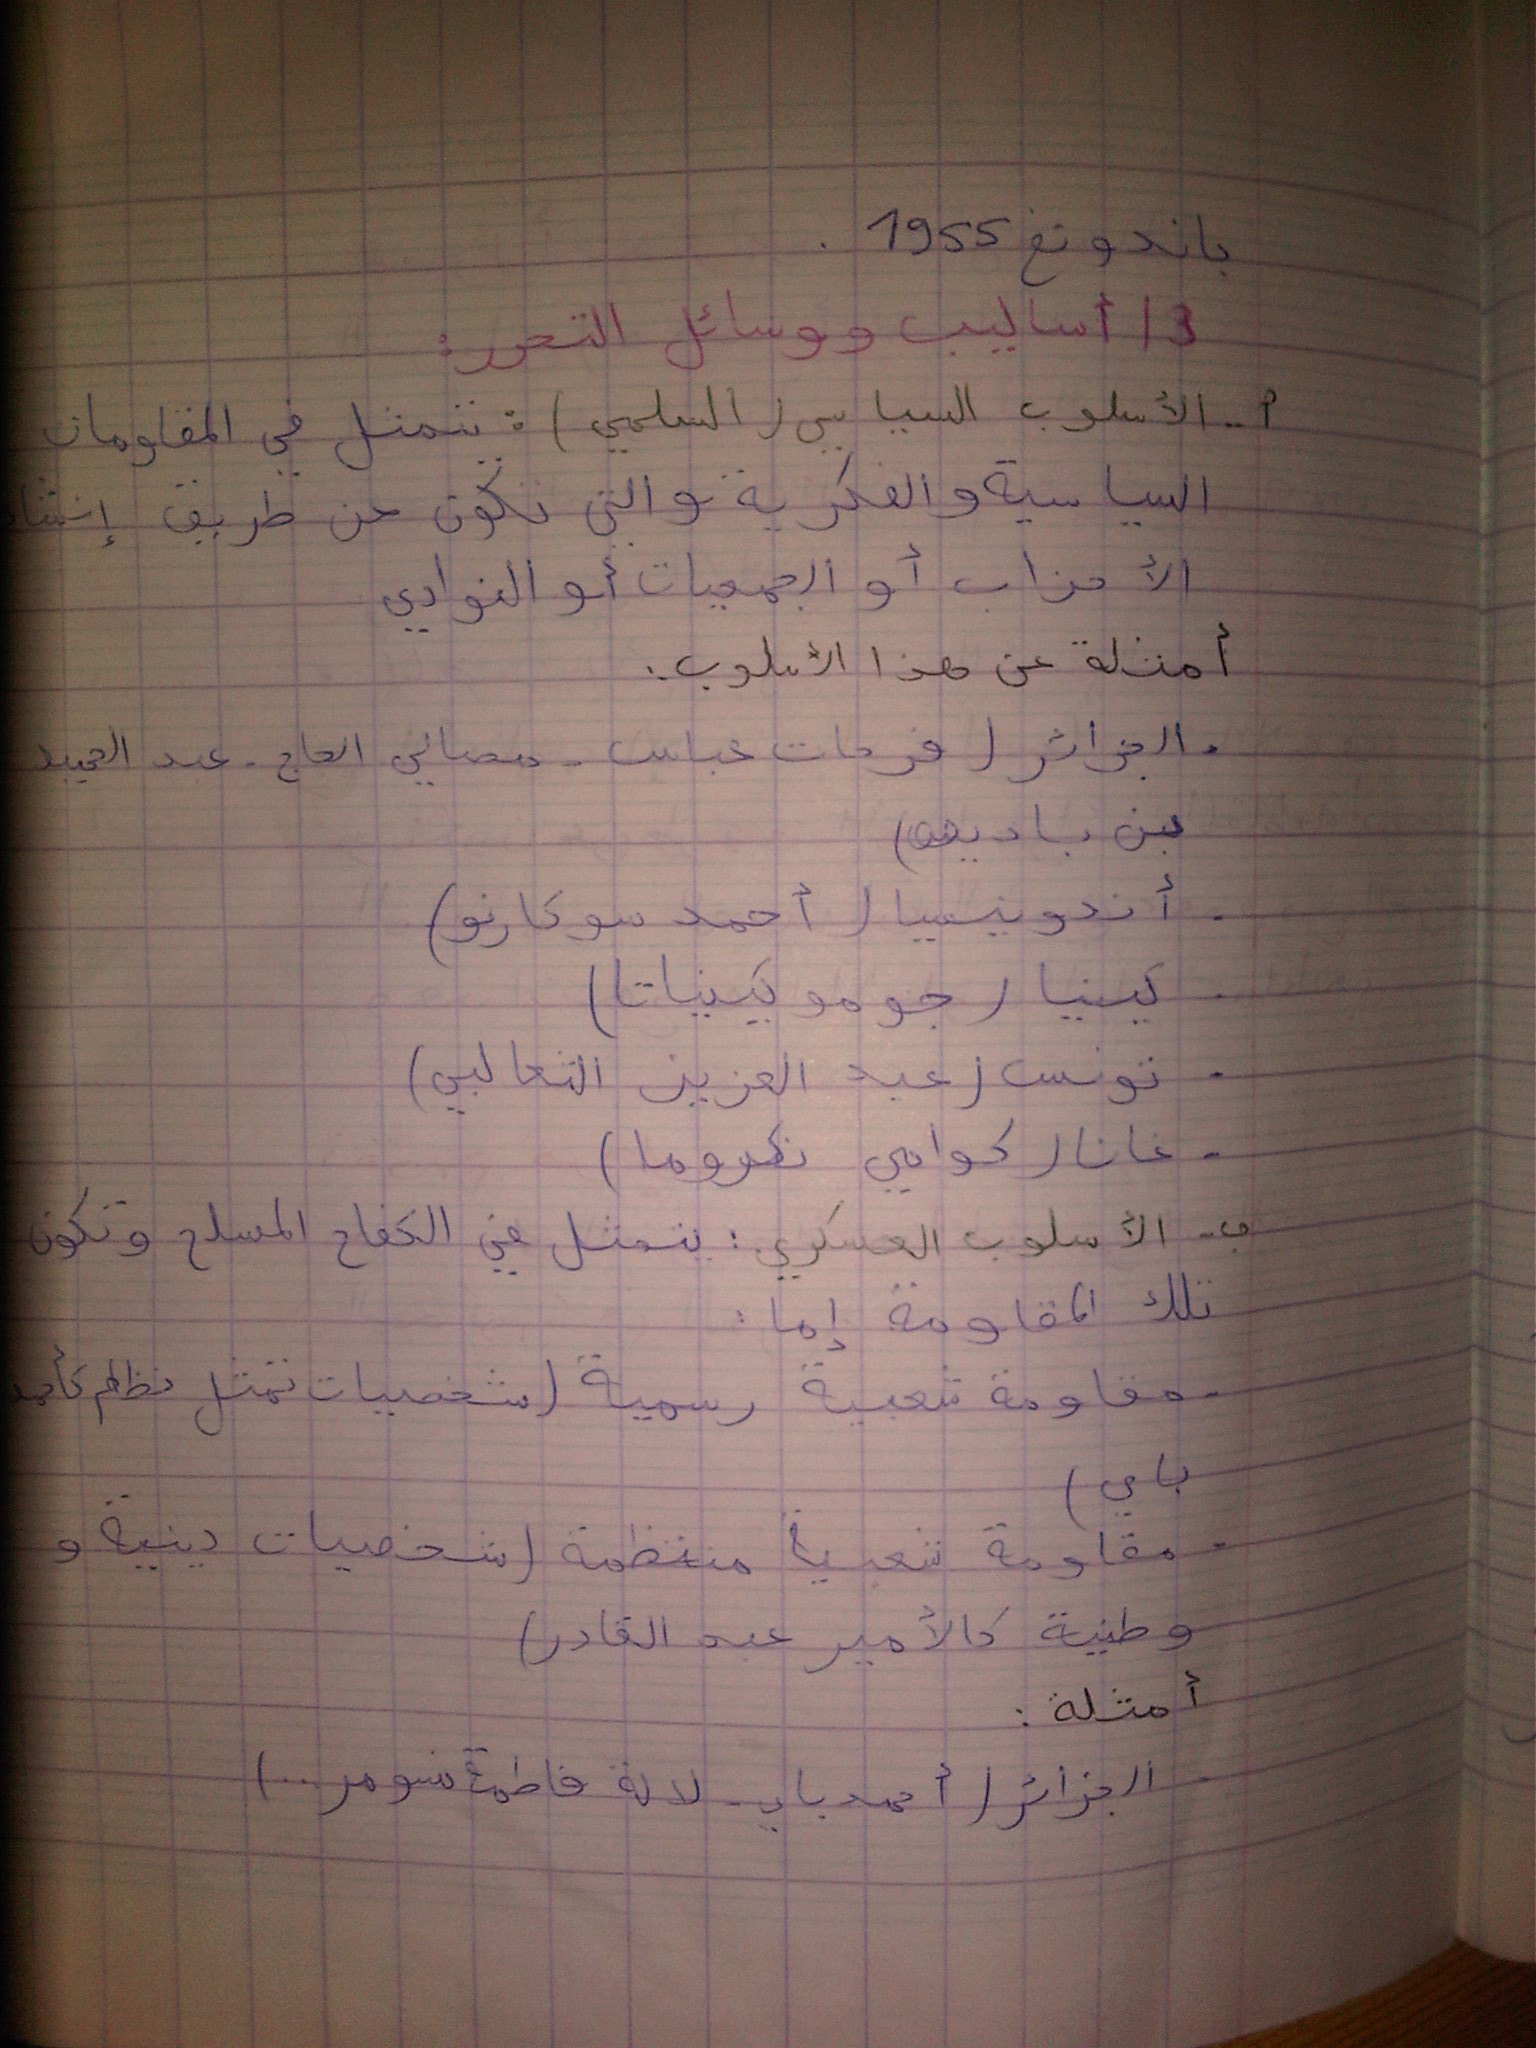 باندونغ 1955 .
3/ أساليب ووسائل التحرر:
أ- الأسلوب السياسي (السلمي): تتمثل في المقاومات
السياسية والفكرية والتي تكون عن طريق إنشاء
الأحزاب أو الجمعيات أو النوادي
أمثلة عن هذا الأسلوب:
- الجزائر (فرحات عباس - مصالي الحاج - عبد الحميد
بن باديس)
- أندونيسيا (أحمد سوكارنو)
- كينيا (جومو كينياتا)
- تونس (عبد العزيز الثعالبي)
- غانا (كوامي نكروما)
ب- الأسلوب العسكري: يتمثل في الكفاح المسلح وتكون
تلك المقاومة إما:
- مقاومة شعبية رسمية (شخصيات تمثل نظام كأحمد
باي)
- مقاومة شعبية منتظمة (شخصيات دينية و
وطنية كالأمير عبد القادر)
أمثلة:
- الجزائر (أحمد باي - لالة فاطمة نسومر ...)